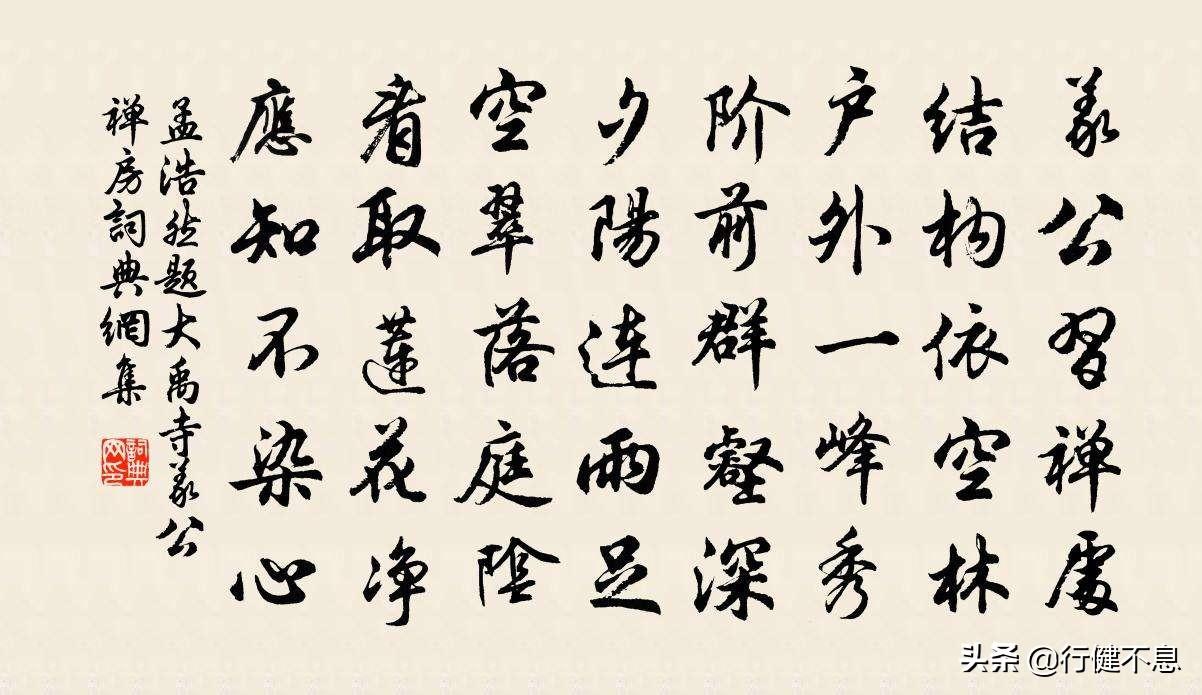 义公習禅處
结构依空林
户外一峰秀
阶前群壑深
夕陽连雨足
空翠落庭陰
看取莲花净
應知不染心
孟浩然题大禹寺义公
禅房詞典網集
詞典网印
头条 @行健不息